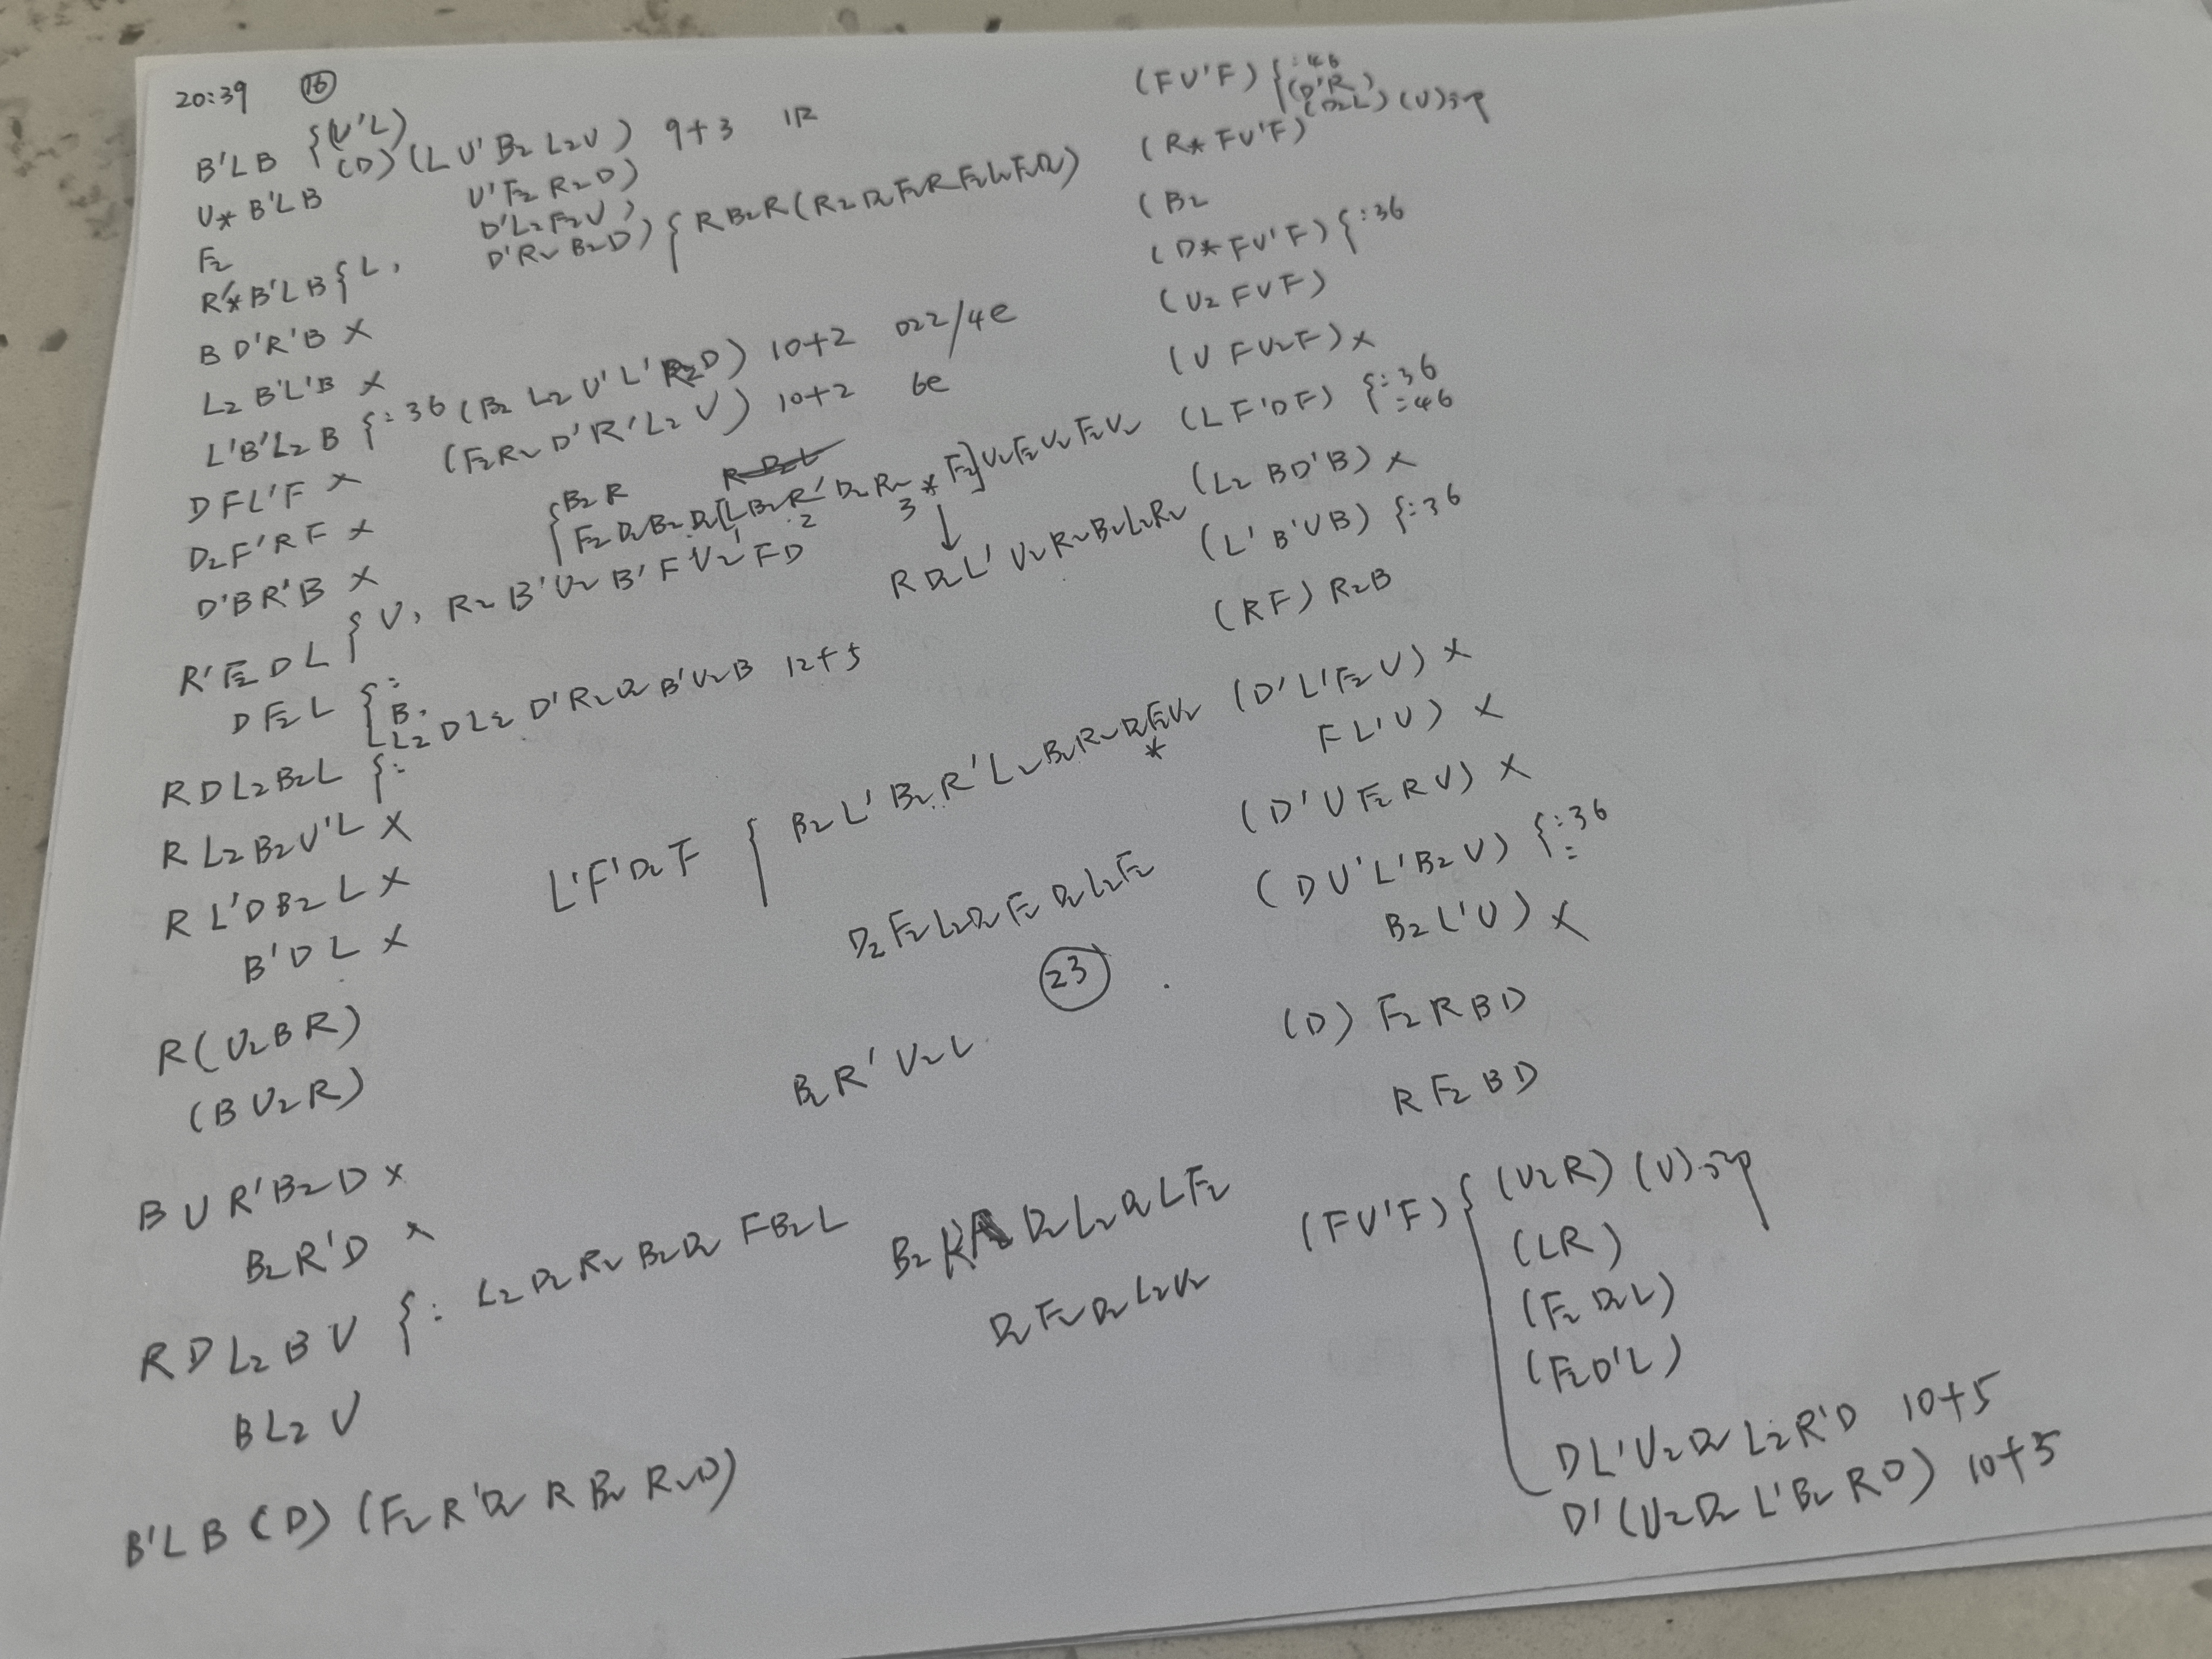 20:39 ⑯
B'LB {(U'L)
(D) (L U' B2 L2 U) 9+3 1R
U* B'LB U' F2 R2 D)
F2 D' L2 F2 U)
R'* B'LB { L, D' R2 B2 D) { R B2 R (R2 D2 F2 R F2 L2 F2 D2)
B D' R' B ×
L2 B' L' B ×
L' B' L2 B {: 36 (B2 L2 U' L' R2 D) 10+2 022/4e
D F L' F × (F2 R2 D' R' L2 U) 10+2 6e
D2 F' R F ×
D' B R' B × { B2 R
F2 D2 B2 D2 [L B2 R' D2 R2 * F2] U2 F2 U2 F2 U2
1 2 3
R' F2 D L { U, R2 B' U2 B' F U2' F D
R D2 L' U2 R2 B2 L2 R2
D F2 L { :
B,
L2 D L2 D' R2 D2 B' U2 B 12+5
R D L2 B2 L { :
R L2 B2 U' L ×
R L' D B2 L ×
B' D L ×
L' F' D2 F { B2 L' B2 R' L2 B2 R2 D2 F2 U2
*
D2 F2 L2 D2 F2 D2 L2 F2
㉓
R (U2 B R)
(B U2 R)
B2 R' U2 L
B U R' B2 D ×
B2 R' D ×
R D L2 B U { : L2 D2 R2 B2 D2 F B2 L
B L2 U
B2 D2 L2 D2 L F2
D2 F2 D2 L2 U2
B' L B (D) (F2 R' D2 R B2 R2 D)
(F U' F) { : 46
(D' R)
(D2 L) (U)
(R* F U' F)
(B2
(D* F U' F) { : 36
(U2 F U F)
(U F U2 F) ×
(L F' D F) { : 36
: 46
(L2 B D' B) ×
(L' B' U B) { : 36
(R F) R2 B
(D' L' F2 U) ×
F L' U) ×
(D' U F2 R U) ×
(D U' L' B2 U) { : 36
:
B2 L' U) ×
(D) F2 R B D
R F2 B D
(F U' F) { (U2 R) (U)
(L R)
(F2 D2 L)
(F2 D' L)
D L' U2 D2 L2 R' D 10+5
D' (U2 D2 L' B2 R D) 10+5